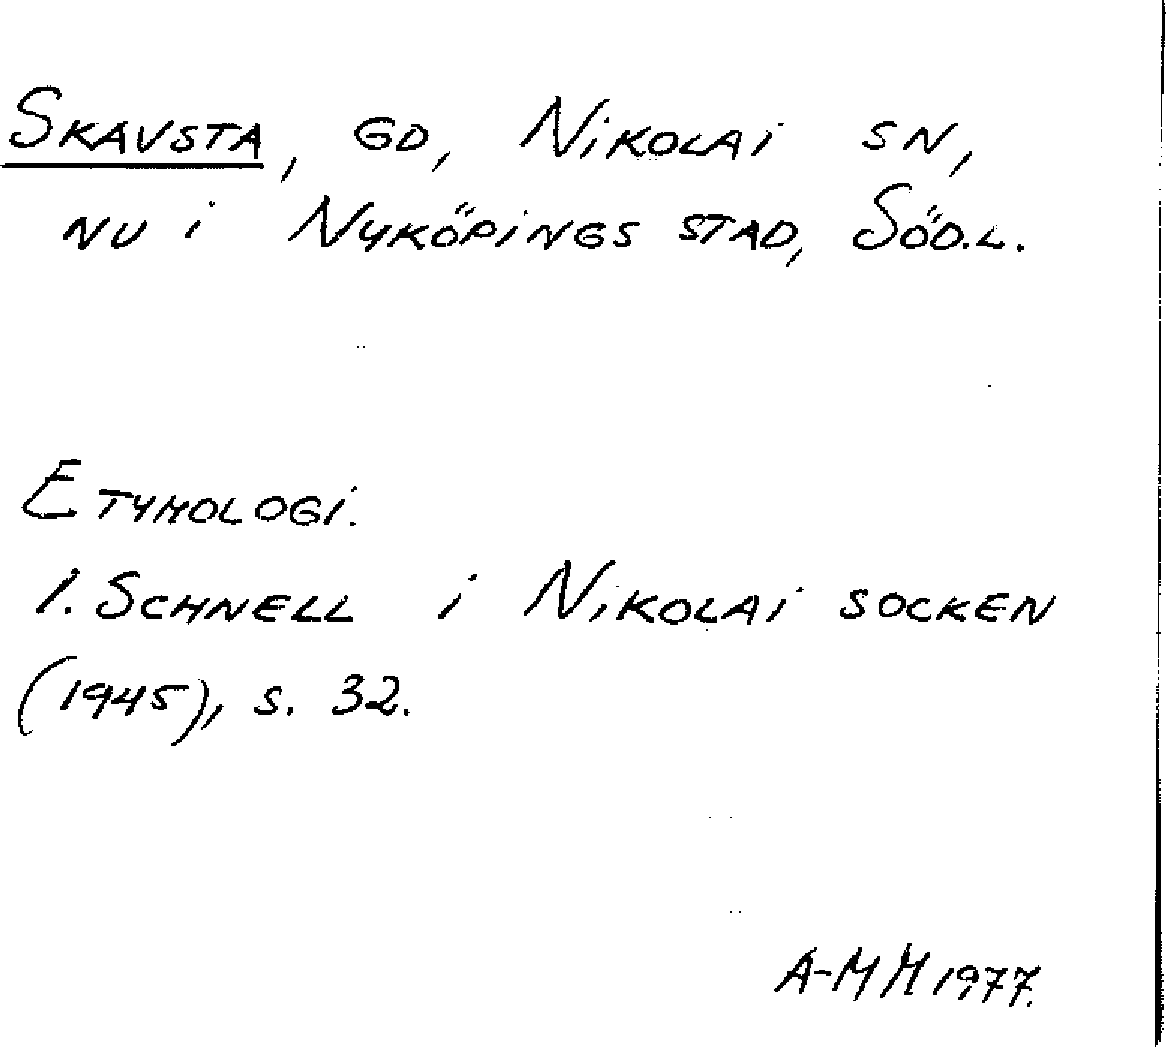 SKAVSTA, GD, NiKOLAi SN,
NU i NYKÖPiNGS STAD, SÖD.L.
ETYMOLOGi.
I. SCHNELL i NiKOLAi SOCKEN
(1945), S. 32.
A-MH 1977.